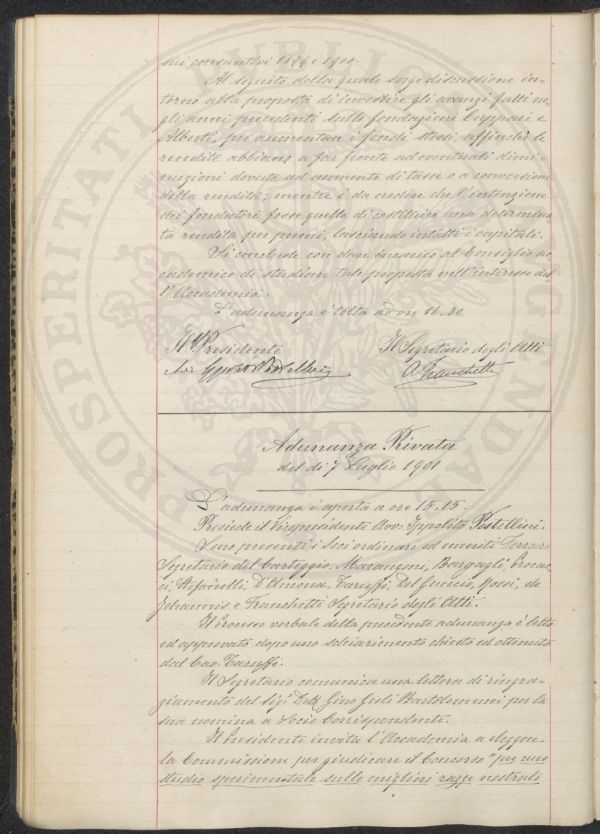 sui consuntivi 1899 e 1900.
Al seguito della quale sorge discussione in-
torno alla proposta di investire gli avanzi fatti ne-
gli anni precedenti sulle fondazioni Cuppari e
Alberti, per aumentare i fondi stessi, affinchè le
rendite abbiano a far fronte ad eventuali dimi-
nuzioni dovute ad aumento di tasse o a conversione
della rendita; mentre è da credere che l'intenzione
dei fondatori fosse quella di costituire una determina-
ta rendita per premi, lasciando intatti i capitali.
Si conclude con dare incarico al Consiglio ac-
cademico di studiare tale proposta nell'interesse del-
l'Accademia.
L'adunanza è tolta ad ore 16.30
Il V. Presidente Il Segretario degli Atti
Avv. Ippolito Pestellini Franchetti
Adunanza Privata
del dì 7 Luglio 1901
L'adunanza è aperta a ore 15,15.
Presiede il Vicepresidente Avv: Ippolito Pestellini.
Sono presenti i Soci ordinari ed emeriti
Segretario del Carteggio, Marangoni, Bargagli, Procac-
ci, Stefanelli, D'Ancona, Taruffi, Del Guercio, Rossi, de
Johannis e Franchetti Segretario degli Atti.
Il Processo verbale della precedente adunanza è letto
ed approvato dopo uno schiarimento chiesto ed ottenuto
dal Cav. Taruffi.
Il Segretario comunica una lettera di ringra-
ziamento del Sigr Dott. Gino Gioli Bartolommei per la
sua nomina a Socio Corrispondente.
Il Presidente invita l'Accademia a eleggere
la Commissione per giudicare il Concorso "per uno
studio sperimentale sulle migliori razze nostrali
PROSPERITATI PUBLICAE AUGENDAE